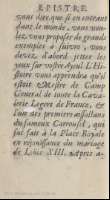 EPISTRE
vous dire, que si en entrant
dans le monde, vous voulez
vous proposer de grands
exemples à suivre, vous
devez d'abord jetter les
yeux sur vostre Ayeul. L'Histoire
vous apprendra qu'il
estoit Mestre de Camp
General de toute la Cavalerie
Legere de France, &
l'un des premiers assaillans
du fameux Carrousel, qui
fut fait à la Place Royale
en réjouissance du mariage
de Louis XIII. & après